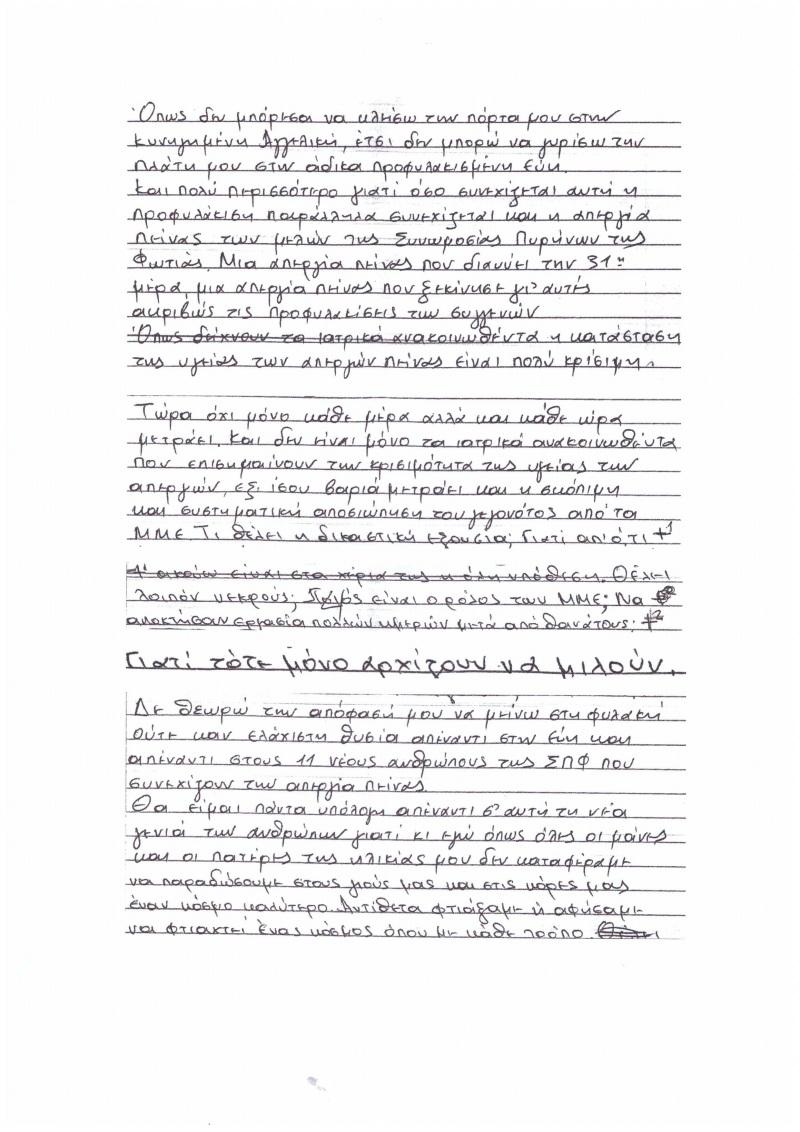 Όπως δεν μπόρεσα να κλείσω την πόρτα μου στην
κυνηγημένη Αγγελική, έτσι δεν μπορώ να γυρίσω την
πλάτη μου στην άδικα προφυλακισμένη Εύη.
Και πολύ περισσότερο γιατί όσο συνεχίζεται αυτή η
προφυλάκιση παράλληλα συνεχίζεται και η απεργία
πείνας των μελών της Συνωμοσίας Πυρήνων της
Φωτιάς. Μια απεργία πείνας που διανύει την 31η
μέρα, μια απεργία πείνας που ξεκίνησε γι' αυτές
ακριβώς τις προφυλακίσεις των συγγενών
Όπως δείχνουν τα ιατρικά ανακοινωθέντα η κατάσταση
της υγείας των απεργών πείνας είναι πολύ κρίσιμη.
Τώρα όχι μόνο κάθε μέρα αλλά και κάθε ώρα
μετράει. Και δεν είναι μόνο τα ιατρικά ανακοινωθέντα
που επισημαίνουν την κρισιμότητα της υγείας των
απεργών, εξ ίσου βαριά μετράει και η σκόπιμη
και συστηματική αποσιώπηση του γεγονότος από τα
ΜΜΕ. Τι θέλει η δικαστική εξουσία; Γιατί απ' ό,τι +1
ακούω είναι στα χέρια της η όλη υπόθεση. Θέλει
λοιπόν νεκρούς; Ποιός είναι ο ρόλος των ΜΜΕ; Να
αποκτήσουν εργασία πολλών ημερών μετά από θανάτους; +2
Γιατί τότε μόνο αρχίζουν να μιλούν.
Δε θεωρώ την απόφασή μου να μείνω στη φυλακή
ούτε καν ελάχιστη θυσία απέναντι στην Εύη και
απέναντι στους 11 νέους ανθρώπους της ΣΠΦ που
συνεχίζουν την απεργία πείνας.
Θα είμαι πάντα υπόλογη απέναντι σ' αυτή τη νέα
γενιά των ανθρώπων γιατί κι εγώ όπως όλες οι μάνες
και οι πατέρες της ηλικίας μου δεν καταφέραμε
να παραδώσουμε στους γιούς μας και στις κόρες μας
έναν κόσμο καλύτερο. Αντίθετα φτιάξαμε ή αφήσαμε
να φτιαχτεί ένας κόσμος όπου με κάθε τρόπο